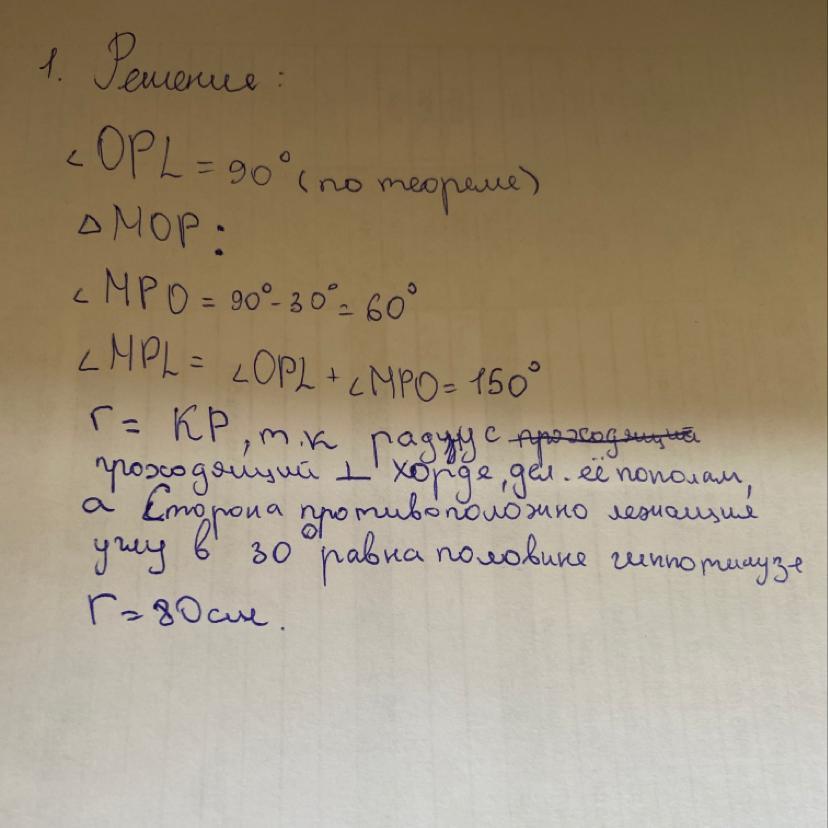 1. Решение:
∠OPL = 90° (по теореме)
△MOP:
∠MPO = 90° - 30° = 60°
∠MPL = ∠OPL + ∠MPO = 150°
r = KP, т.к радиус проходящий
проходящий ⊥ хорде, дел. её пополам,
а Сторона противоположно лежащия
углу в 30° равна половине гиппотинузе
r = 80см.